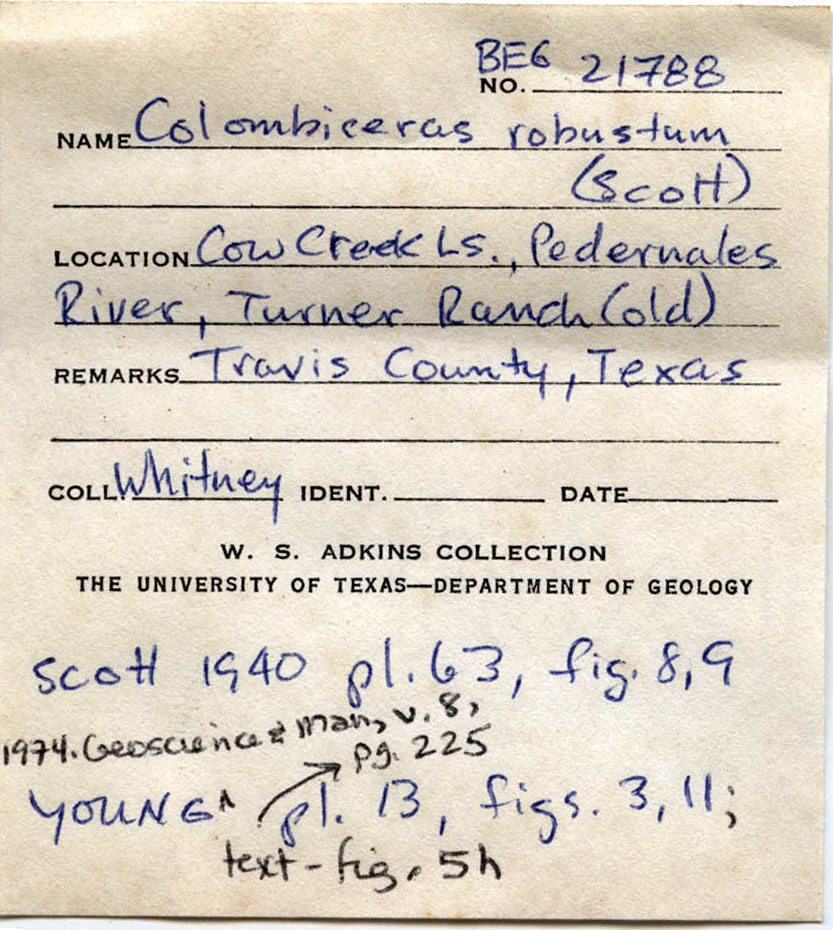 BEG
NO. 21788
NAME Colombiceras robustum
(Scott)
LOCATION Cow Creek Ls., Pedernales
River, Turner Ranch (old)
REMARKS Travis County, Texas
COLL. Whitney IDENT. DATE
W. S. ADKINS COLLECTION
THE UNIVERSITY OF TEXAS—DEPARTMENT OF GEOLOGY
Scott 1940 pl. 63, fig. 8, 9
1974. Geoscience & Man, v. 8,
pg. 225
YOUNG ^ pl. 13, figs. 3, 11;
text-fig. 5h